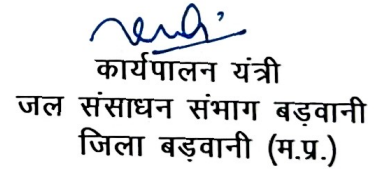 कार्यपालन यंत्री
जल संसाधन संभाग बड़वानी
जिला बड़वानी (म.प्र.)